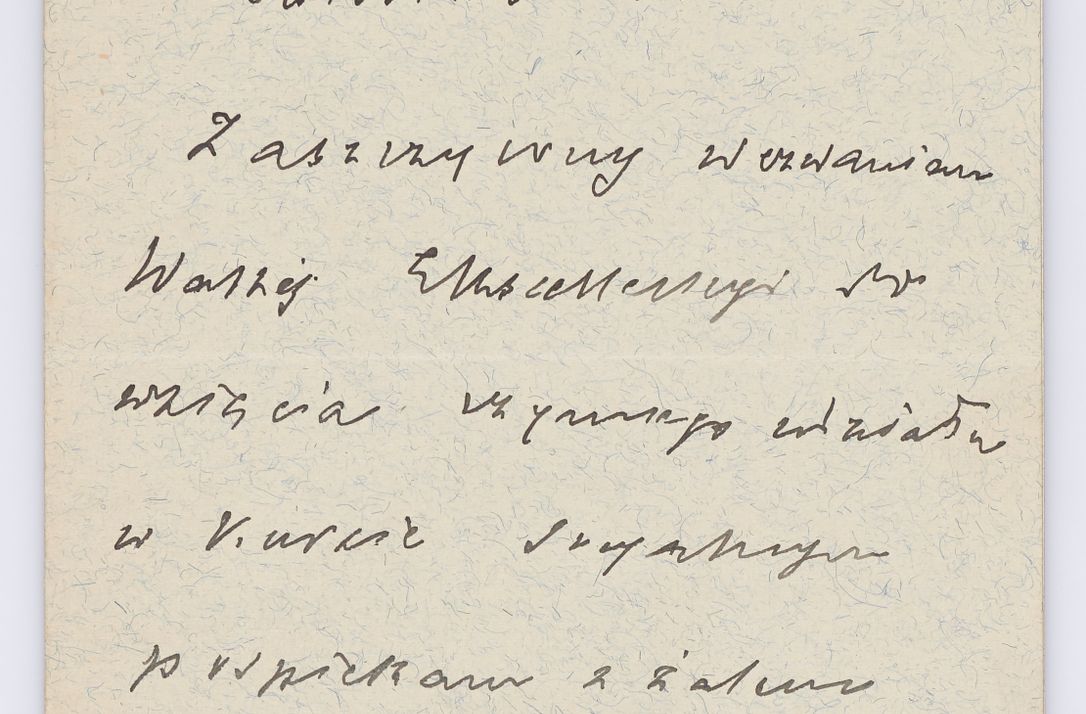 Zaszczycony wezwaniem
Waszej Ekscellencyi do
wzięcia czynnego udziału
w Kursie
pospieszam z żalem